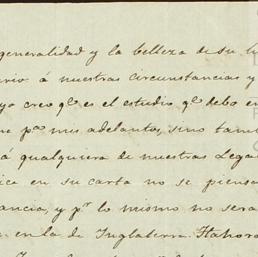 generalidad y la belleza de su
á nuestras circunstancias y
yo creo qe es el estudio qe debo en
pa mis adelantos, sino tam
á qualquiera de nuestras Lega
ice en su carta no se piensa
ancia, y pr lo mismo no sera
en la de Inglaterra. Hahora